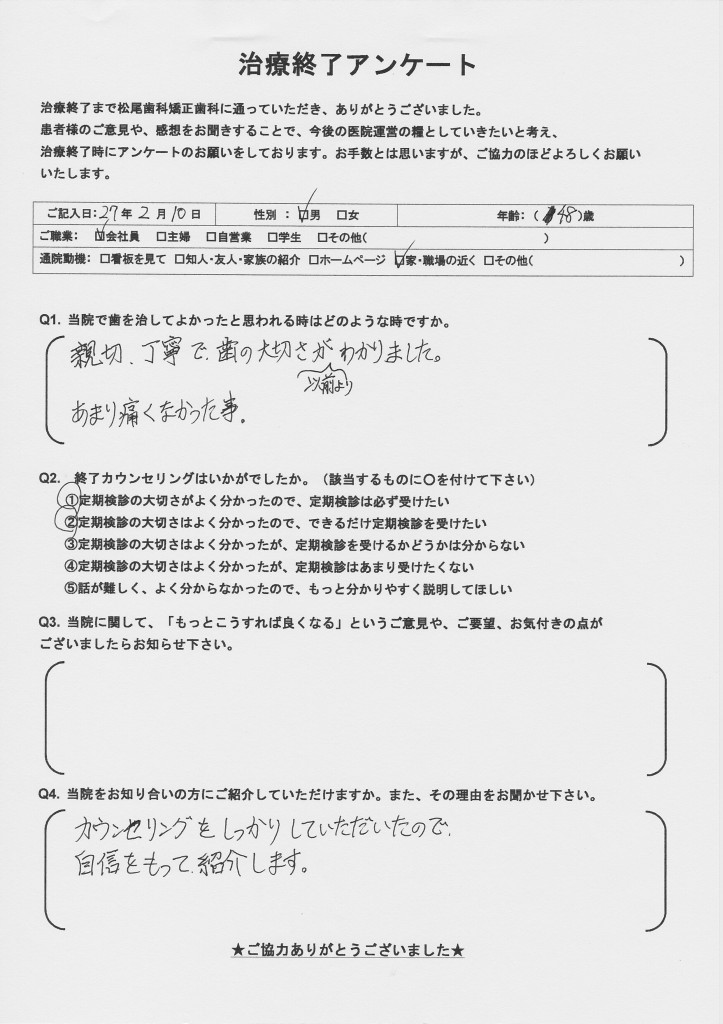 治療終了アンケート
治療終了まで松尾歯科矯正歯科に通っていただき、ありがとうございました。
患者様のご意見や、感想をお聞きすることで、今後の医院運営の糧としていきたいと考え、
治療終了時にアンケートのお願いをしております。お手数とは思いますが、ご協力のほどよろしくお願い
いたします。
ご記入日：27年 2月 10日 性別 ： ☑男 □女 年齢：（ 48）歳
ご職業： ☑会社員 □主婦 □自営業 □学生 □その他（ ）
通院動機： □看板を見て □知人・友人・家族の紹介 □ホームページ ☑家・職場の近く □その他（ ）
Q1. 当院で歯を治してよかったと思われる時はどのような時ですか。
親切、丁寧で、歯の大切さがわかりました。
以前より
あまり痛くなかった事。
Q2. 終了カウンセリングはいかがでしたか。（該当するものに〇を付けて下さい）
①定期検診の大切さがよく分かったので、定期検診は必ず受けたい
②定期検診の大切さはよく分かったので、できるだけ定期検診を受けたい
③定期検診の大切さはよく分かったが、定期検診を受けるかどうかは分からない
④定期検診の大切さはよく分かったが、定期検診はあまり受けたくない
⑤話が難しく、よく分からなかったので、もっと分かりやすく説明してほしい
Q3. 当院に関して、「もっとこうすれば良くなる」というご意見や、ご要望、お気付きの点が
ございましたらお知らせ下さい。
Q4. 当院をお知り合いの方にご紹介していただけますか。また、その理由をお聞かせ下さい。
カウンセリングをしっかりしていただいたので、
自信をもって、紹介します。
★ご協力ありがとうございました★